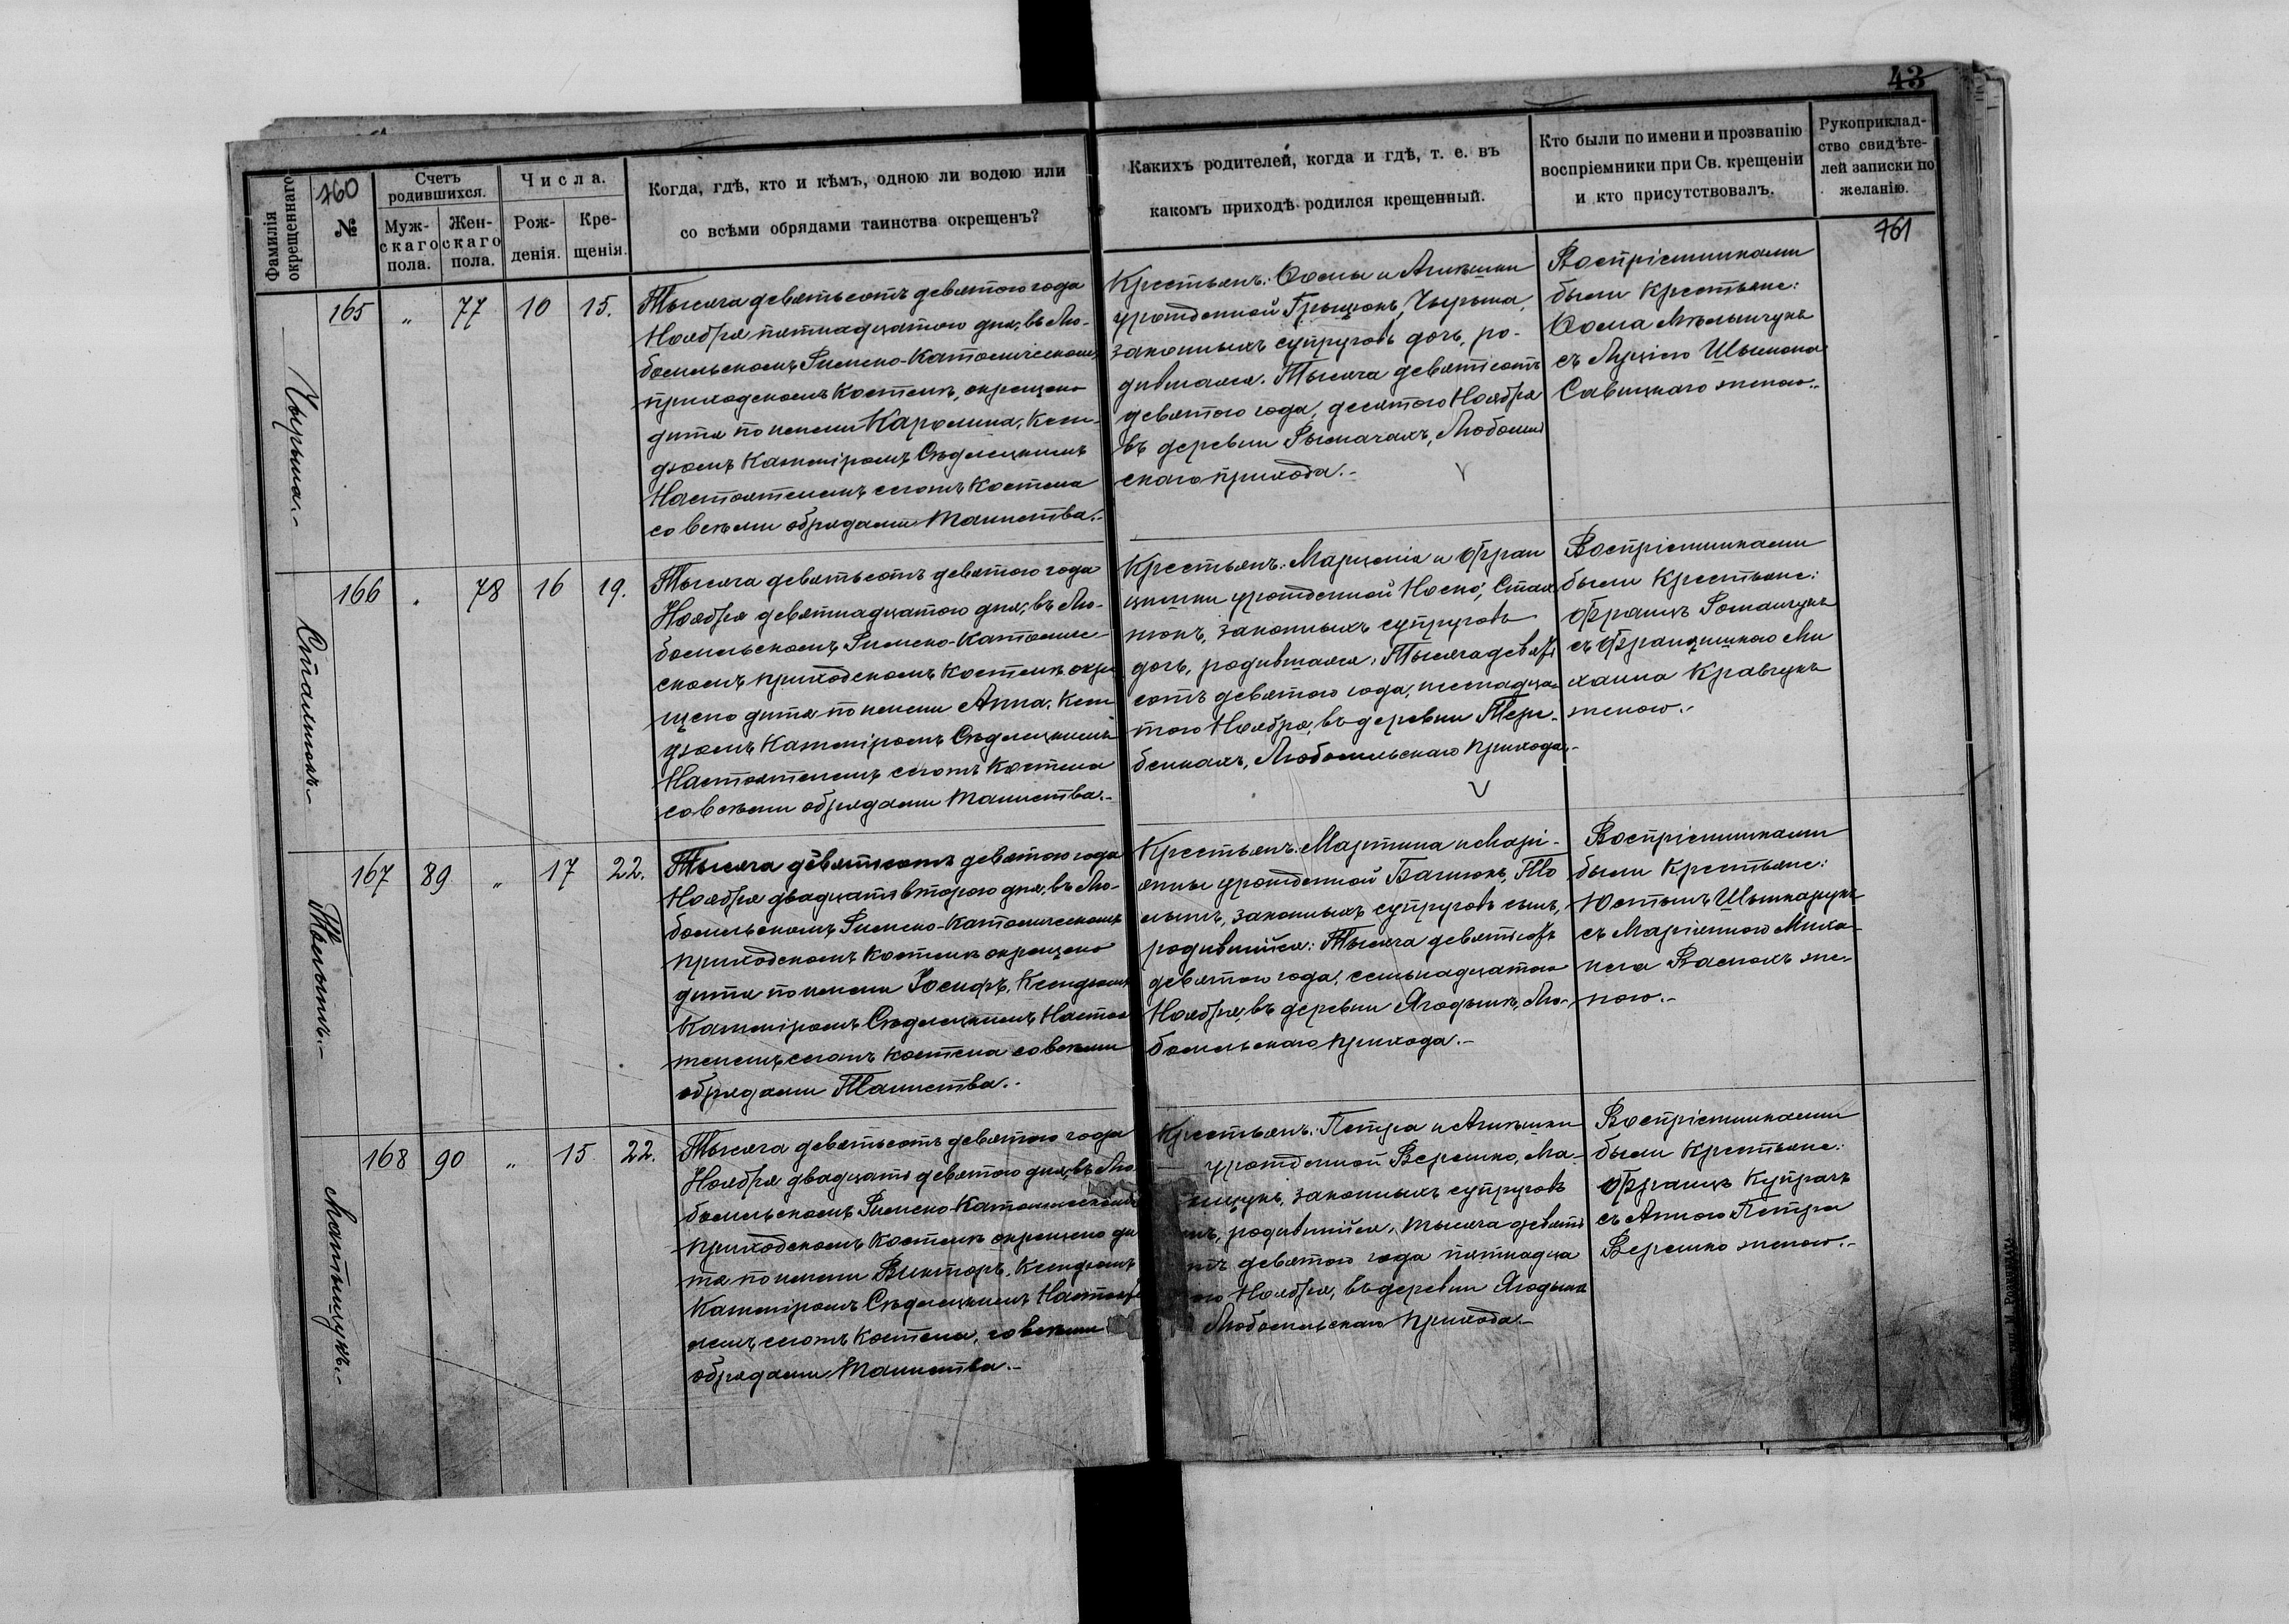 43
Фамилія
окрещеннаго
760
№
Счетъ
родившихся.
Муж-
скаго
пола.
Жен-
скаго
пола.
Числа.
Рож-
денія.
Кре-
щенія.
Когда, гдѣ, кто и кѣмъ, одною ли водою или
со всѣми обрядами таинства окрещенъ?
Какихъ родителей, когда и гдѣ, т. е. въ
какомъ приходѣ родился крещенный.
Кто были по имени и прозванію
воспріемники при Св. крещеніи
и кто присутствовалъ.
Рукоприклад-
ство свидѣте-
лей записки по
желанію.
761
Чырыма.-
165 „ 77 10 15.
Тысяча девятьсотъ девятого года
Ноября пятнадцатого дня, въ Лю-
бомльскомъ Римско-Католическомъ
приходскомъ Костелѣ, окрещено
дитя по имени Каролина, Ксен-
дзомъ Казимiромъ Сѣдлецкимъ
Настоятелемъ сегожъ Костела
со всѣми обрядами Таинства.-
Крестьянъ: Ѳомы и Агнѣшки
урожденной Грыцюкъ, Чырыма,
законныхъ супруговъ дочь, ро-
дившаяся. Тысяча девятьсотъ
девятого года, десятого Ноября
въ деревни Рымачахъ, Любомль
скаго прихода.-
Воспріемниками
были Крестьяне:
Ѳома Мѣльничукъ
съ Луціею Шымона
Савицкаго женою.-
Сталюкъ.-
166 „ 78 16 19.
Тысяча девятьсотъ девятого года
Ноября девятнадцатого дня, въ Лю-
бомльскомъ Римско-Католиче-
скомъ приходскомъ Костелѣ окре
щено дитя по имени Анна, Ксен
дзомъ Казимiромъ Сѣдлецкимъ
Настоятелемъ сегожъ Костела
со всѣми обрядами Таинства.-
Крестьянъ: Марцелія и Фран
цишки урожденной Носко, Стал
люкъ, законныхъ супруговъ
дочь, родившаяся. Тысяча девять
сотъ девятого года, шеснадца-
того Ноября, въ деревни Тере-
бейкахъ, Любомльскаго прихода.-
Воспріемниками
были Крестьяне:
Францъ Романчукъ
съ Францишкою Ми
хаила Кравчукъ
женою.-
167 89 „ 17 22.
Тысяча девятьсотъ девятого года
Ноября двадцать второго дня, въ Лю-
бомльскомъ Римско-Католическомъ
приходскомъ Костелѣ окрещено
дитя по имени Іосифъ, Ксендзомъ
Казимiромъ Сѣдлецкимъ Настоя
телемъ сегожъ Костела со всѣми
обрядами Таинства.-
Крестьянъ: Мартина и Марі-
янны урожденной
законныхъ супруговъ сынъ,
родившійся: Тысяча девятьсотъ
девятого года, семьнадцатого
Ноября, въ деревни Ягодынѣ, Лю-
бомльскаго прихода.-
Воспріемниками
были Крестьяне:
Юстынъ
съ Маріянною Миха-
ила же-
ною.-
Матыщукъ.-
168 90 „ 15 22.
Тысяча девятьсотъ девятого года
Ноября двадцать девятого дня, въ Лю
бомльскомъ Римско-Католическомъ
приходскомъ Костелѣ окрещено ди
тя по имени Викторъ, Ксендзомъ
Казимiромъ Сѣдлецкимъ Настояте
лемъ сегожъ Костела, со всѣми
обрядами Таинства.-
Крестьянъ: Петра и Агнѣшки
урожденной Верешко, Ма-
законныхъ супруговъ
родившійся, тысяча девять
девятого года пятнадца
Ноября, въ деревни Ягодынѣ
Любомльскаго прихода.-
Воспріемниками
были Крестьяне:
Францъ Купрачъ
съ Анною Петра
Верешко женою.-